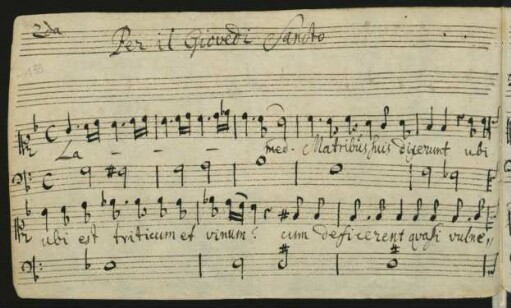 2da
Per il Giovedi Sancto
La - - - - med. Matribus suis dixerunt ubi
ubi est triticum et vinum? cum deficerent quasi vulne,,